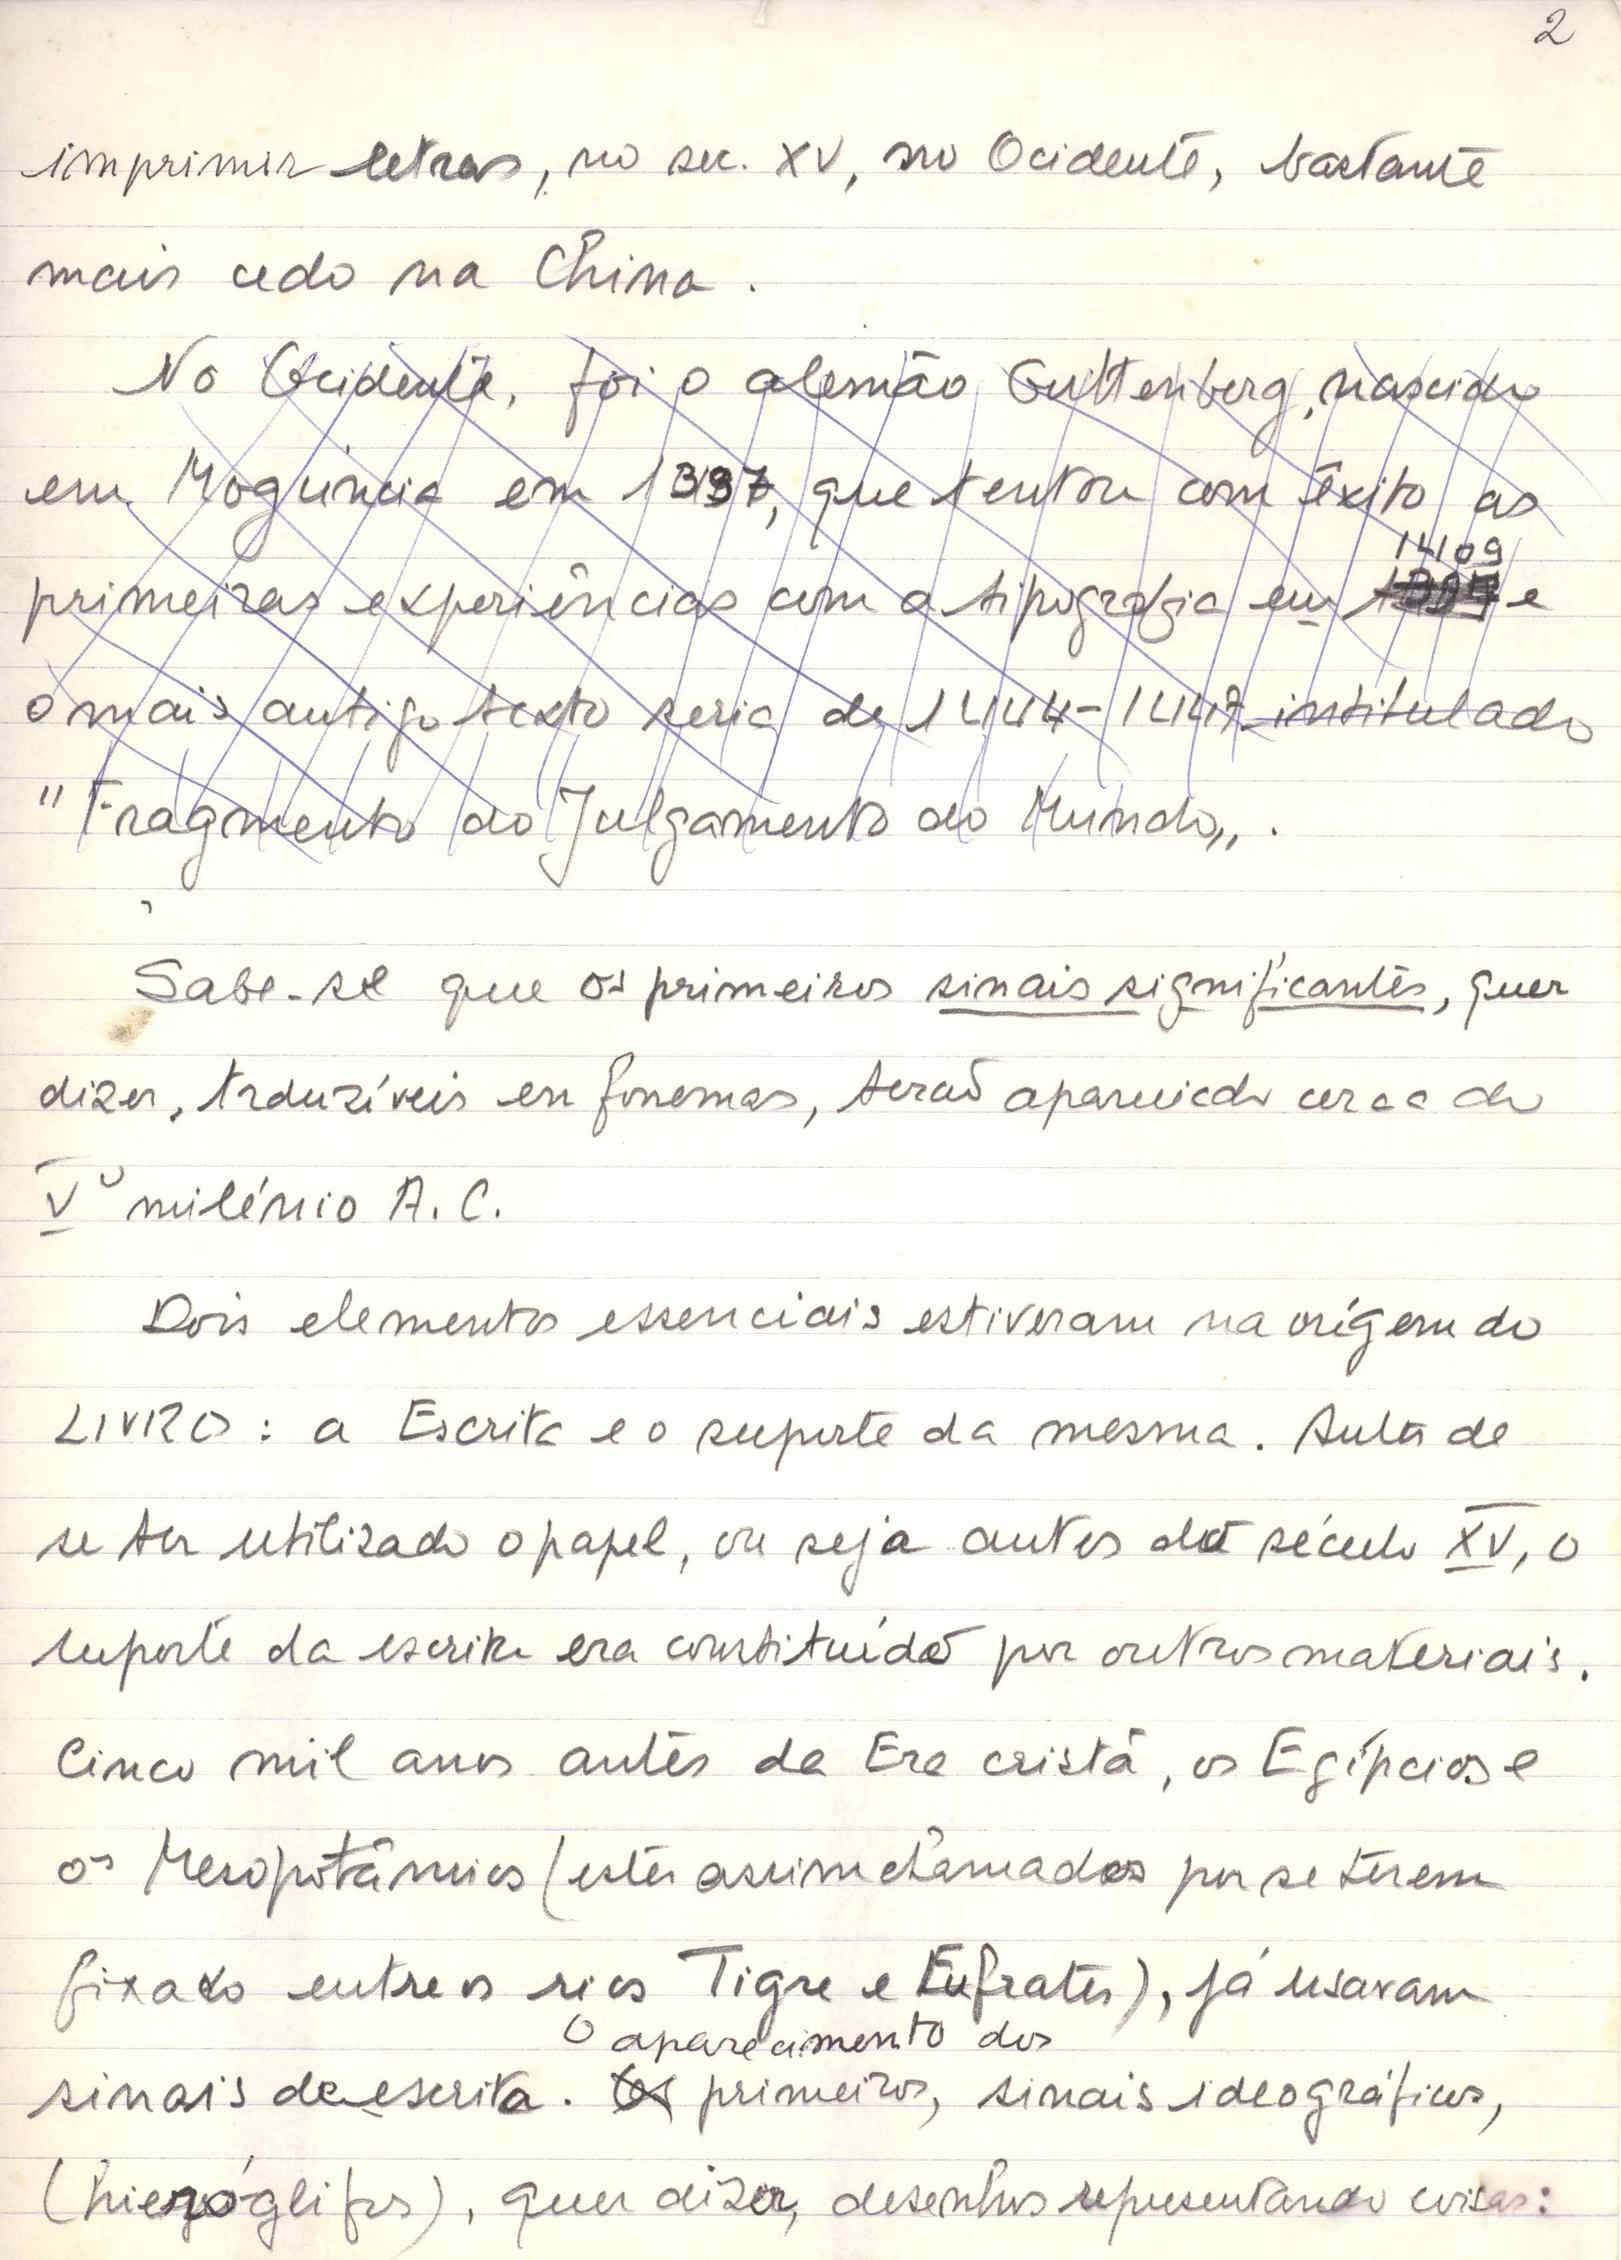 2
imprimir letras, no sec. XV, no Ocidente, bastante
mais cedo na China.
No Ocidente, foi o alemão Guttenberg, nascido
em Mogúncia em 1397, que tentou com êxito as
1409
primeiras experiências com a tipografia em e
o mais antigo texto seria de 1444-1447 intitulado
"Fragmento do Julgamento do Mundo„.
Sabe-se que os primeiros sinais significantes, quer
dizer, traduzíveis em fonemas, terão aparecido cerca do
Vº milénio A.C.
Dois elementos essenciais estiveram na orígem do
LIVRO: a Escrita e o suporte da mesma. Antes de
se ter utilizado o papel, ou seja antes do século XV, o
suporte da escrita era constituído por outros materiais.
Cinco mil anos antes da Era cristã, os Egípcios e
os Mesopotâmios (estes assim chamados por se terem
fixado entre os rios Tigre e Eufrates), já usavam
O aparecimento dos
sinais de escrita. Os primeiros, sinais ideográficos,
(hieróglifos), quer dizer, desenhos representando coisas: